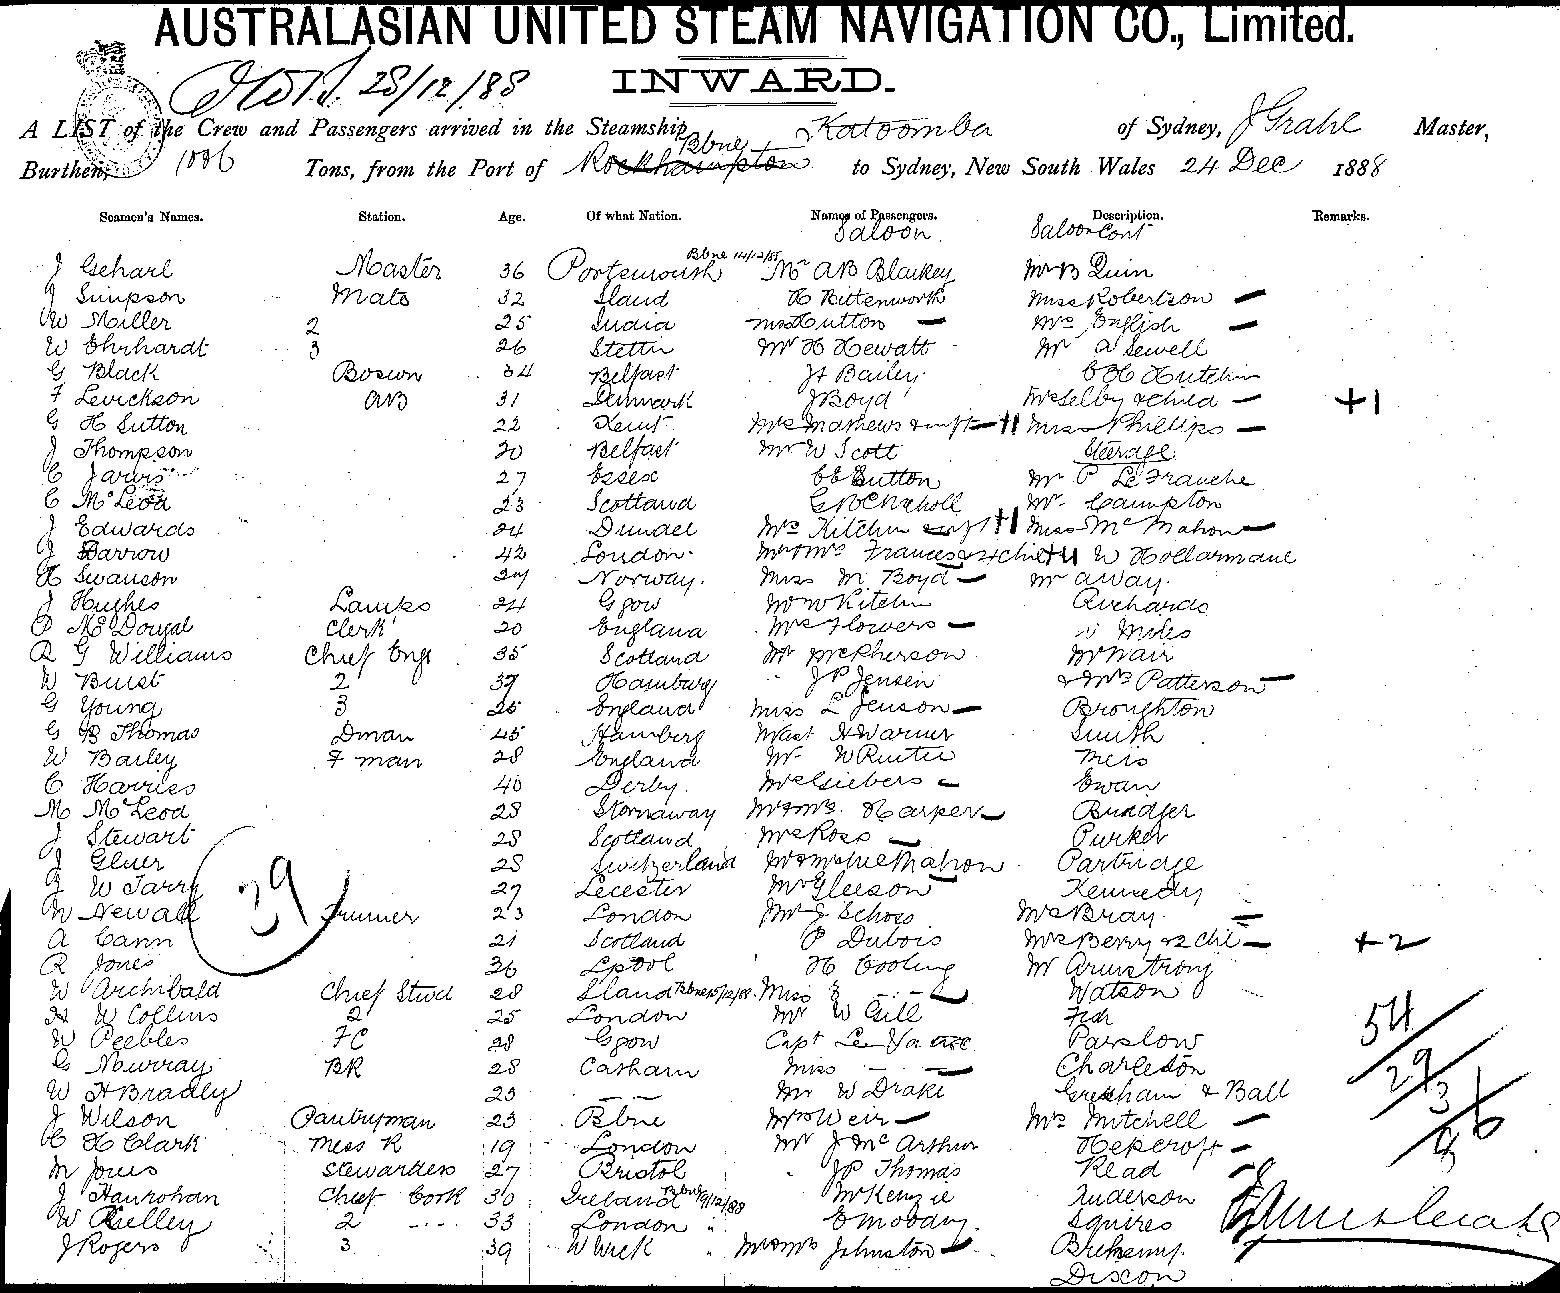 AUSTRALASIAN UNITED STEAM NAVIGATION CO., Limited.
28/12/88 INWARD.
A LIST of the Crew and Passengers arrived in the Steamship Katoomba of Sydney, J Grahl Master,
Bbne
Burthen, 1006 Tons, from the Port of Rockhampton to Sydney, New South Wales 24 Dec 1888
Seamen's Names. Station. Age. Of what Nation. Names of Passengers. Description. Remarks.
Saloon Saloon Cont
Bbne 14/12/88
J Master 36 Portsmouth Mr AB Blackey Mr B Quin
J Simpson Mate 32 Sland H Miss Robertson —
W Miller 2 25 India Mrs Hutton — Mrs English —
W Ehrhardt 3 26 Stettin Mr H Hewatt Mr A Sewell
G Black Bosun 34 Belfast Jt Bailey Hutchin
F Levickson AB 31 Denmark J Boyd Mrs Selby & child — +1
G H Sutton 22 Kent Mrs Mathews & inft — +1 Miss Phillips —
J Thompson 20 Belfast Mr W Scott Steerage
C Jarvis 27 Essex CE Sutton Mr P Le Franche
C McLeod 23 Scotland Mr Campton
J Edwards 24 Dundee Mrs Kitchin & inft +1 Miss McMahon —
J Barrow 42 London Mr & Mrs Frances & 4 chil +4 W Hollarmane
H Swanson Norway. Miss M Boyd — Mr Away.
J Hughes Lamps 24 Ggow Mr W Kitchin Richards
P McDougal Clerk 20 England Mrs Flowers — " Miles
R G Williams Chief Engr 35 Scotland Mr McPherson Mr Nair
W Buist 2 Hamburg JP Jensen & Mrs Patterson —
G Young 3 England Miss L Jenson — Broughton
G B Thomas Dman 45 Hamberg Mast H Warner Smith
W Bailey F man 28 England Mr W Ruitee Meis
C Harries 40 Derby. Mrs Giebers — Ewan
M McLeod 28 Stornaway Mr & Mrs Harper —
J Stewart 28 Scotland Mrs Ross — Purker
J Gluer 28 Switzerland Mahon Partridge
J W Tarry 27 Lecester Mr Gleeson — Kennedy
39
W Newall Trimmer 23 London Mr J Schoss Mrs Bray. —
A Cann 21 Scotland P Dubois Mrs Berry & 2 chil — +2
R Jones 36 Lpool H Cooling Mr Armstrong
W Archibald Chief Stwd 28 Sland Bbne 15/12/88 Miss — Watson
H W Collins 2 25 London Mr W Gill Fish
W Peebles FC 28 Ggow Capt Parslow
54
G Murray BR 28 Casham Miss — Charleston
29
W H Bradley 23 Mr W Drake Gresham & Ball
3
J Wilson Pantryman 23 Bbne Mrs Weir — Mrs Mitchell —
C H Clark Mess R 19 London Mr J McArthur Hepcroft —
M Jones Stewardess 27 Bristol JP Thomas Read
J Hanrohan Chief Cook 30 Ireland McKenzie Anderson
W Kelley 2 33 London " E Moody. Squires
J Rogers 3 39 W Wick " Mr & Mrs Johnston —
Dixon